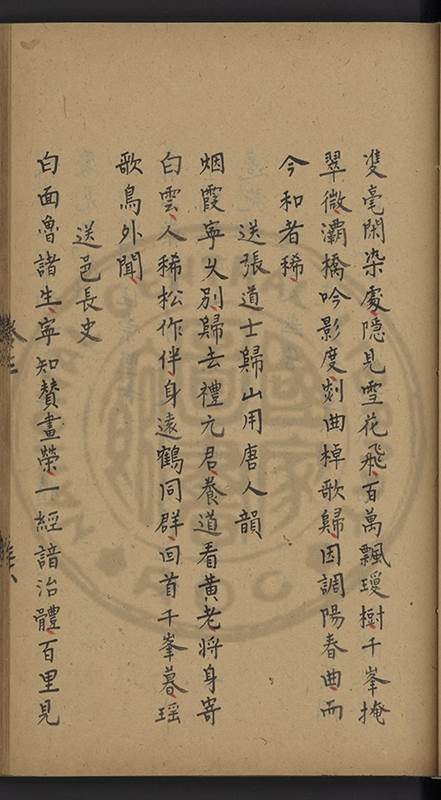 雙毫閑染處隱見雪花飛百萬飄瓊樹千峯掩
翠微灞橋吟影度剡曲棹歌歸因調陽春曲而
今和者稀
送張道士歸山用唐人韻
烟霞寧久別歸去禮元君養道看黃老將身寄
白雲人稀松作伴身遠鶴同群回首千峯暮瑶
歌鳥外聞
送邑長史
白面魯諸生寧知贊畫榮一經諳治體百里見